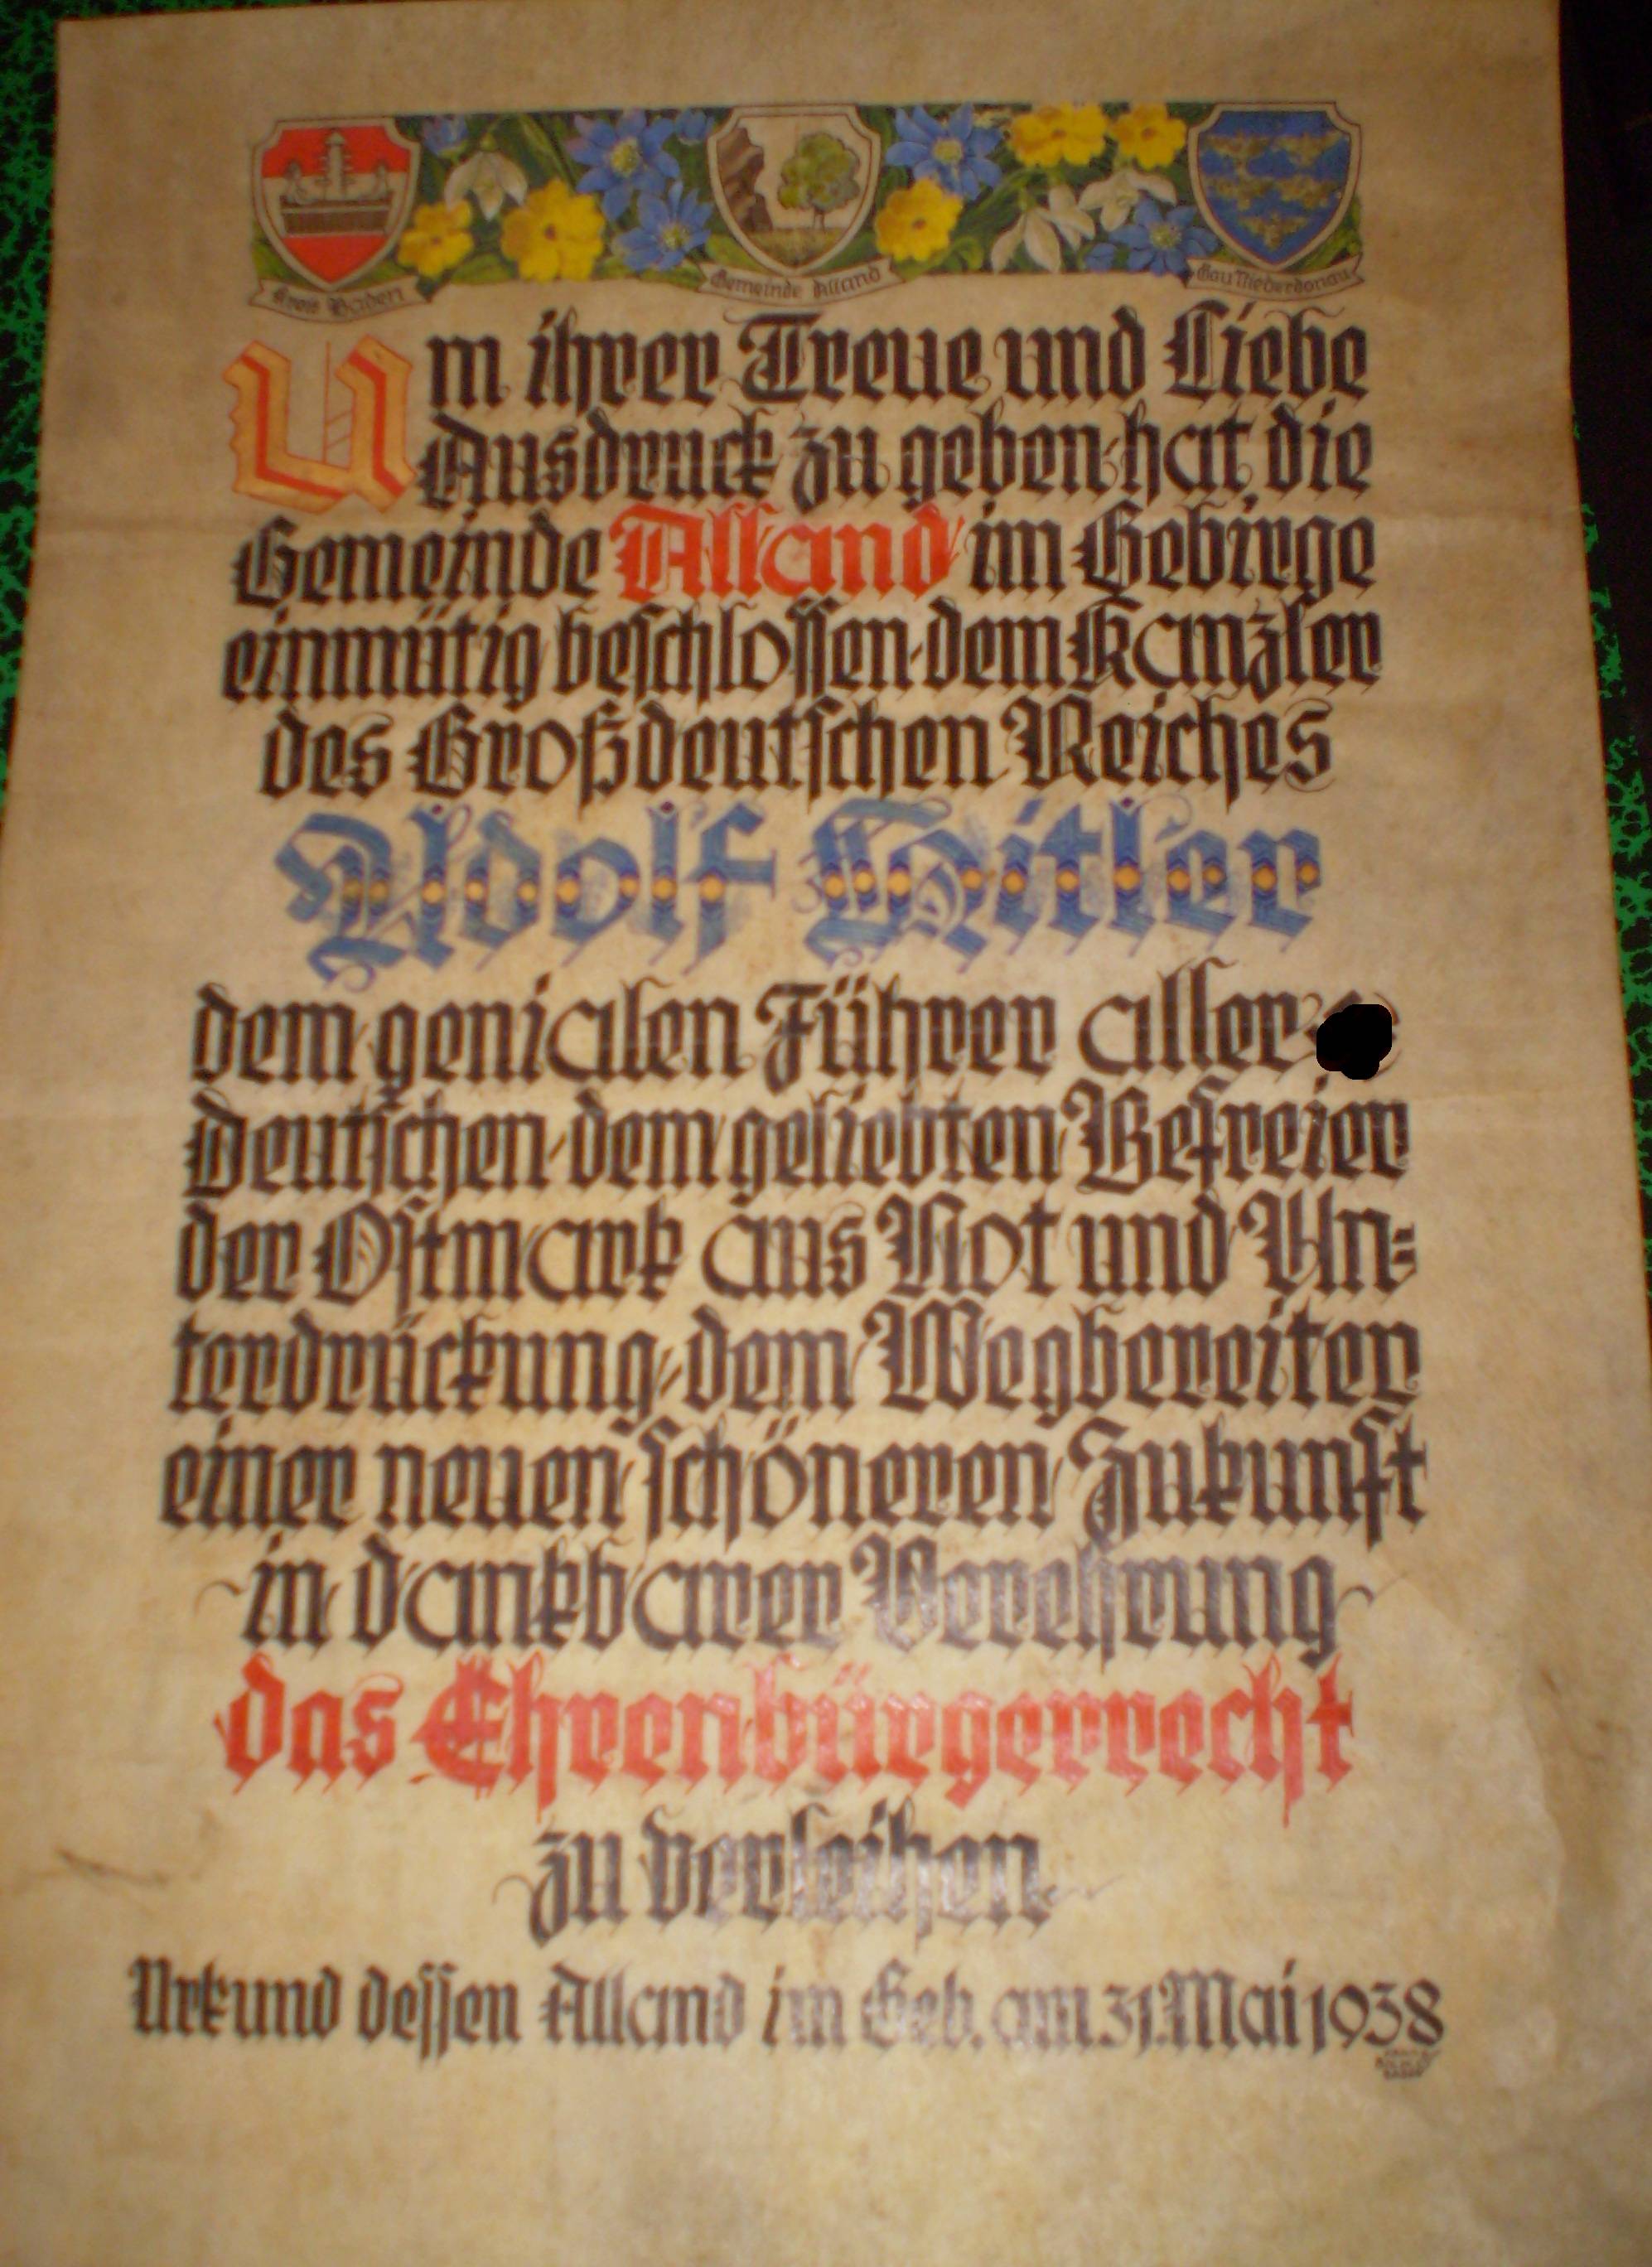 Kreis Baden
Gemeinde Alland
Gau Niederdonau
Um ihrer Treue und Liebe
Ausdruck zu geben·hat die
Gemeinde Alland im Gebirge
einmütig beschlossen·dem Kanzler
des Großdeutschen Reiches
Adolf Hitler
dem genialen Führer aller
Deutschen·dem geliebten Befreier
der Ostmark aus Not und Un=
terdrückung·dem Wegbereiter
einer neuen schöneren Zukunft
in dankbarer Verehrung
das Ehrenbürgerrecht
zu verleihen
Urkund dessen Alland im Geb. am 31. Mai 1938